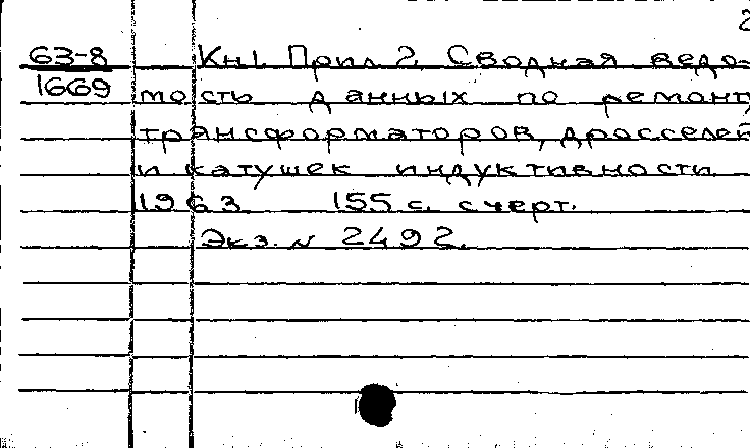 2
63-8 Кн1. Прил 2. Сводная ведо-
1669 мость данных по ремонт
трансформаторов, дросселей
и катушек индуктивности
1963 155 с. с черт.
Экз. N 2492.